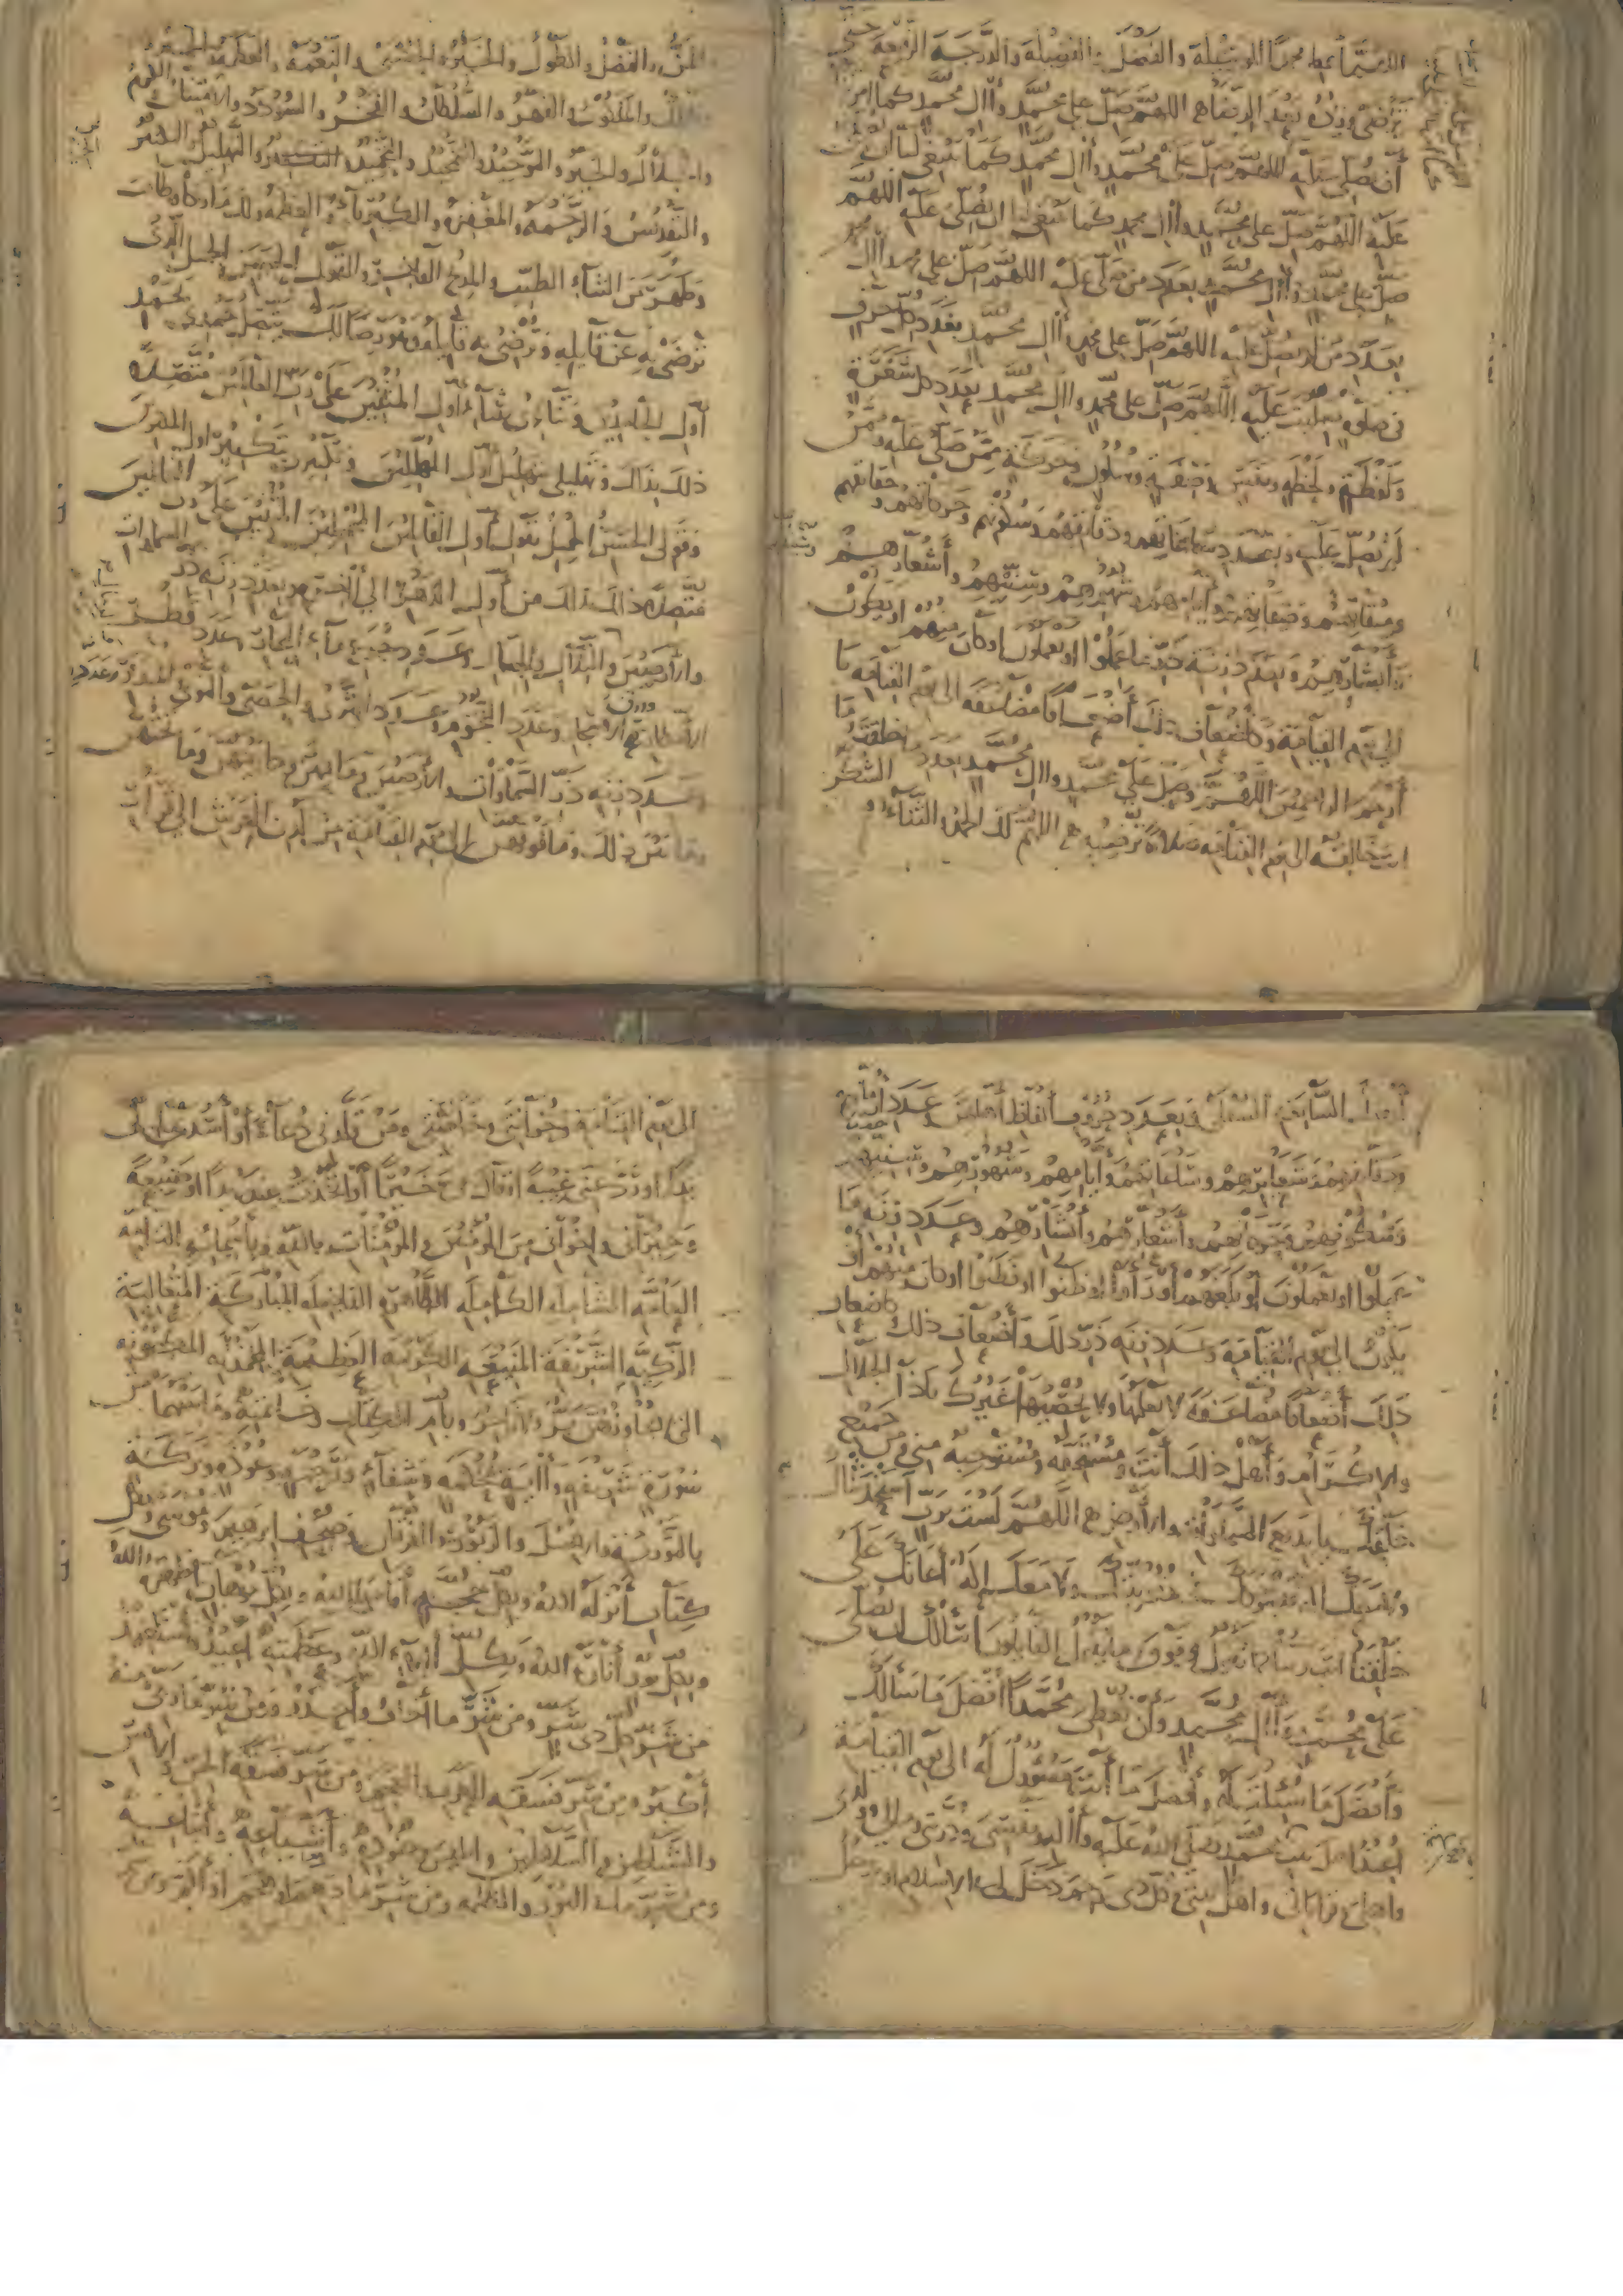 اللهم أعط محمدا الوسيلة والفضل والفضيلة والدرجة الرفيعة حتى
يرضى وزده بعد الرضا اللهم صل على محمد وآل محمد كما أمرتنا
أن نصلي عليه اللهم صل على محمد وآل محمد كما ينبغي لنا أن نصلي
عليه اللهم صل على محمد وآل محمد كما ينبغي لنا أن نصلي عليه اللهم
صل على محمد وآل محمد بعدد من صلى عليه اللهم صل على محمد وآل محمد
بعدد من لم يصل عليه اللهم صل على محمد وآل محمد بعدد كل حرف
في صلوة صليت عليه اللهم صل على محمد وآل محمد بعدد كل شعرة
ولفظة ولحظة ونفس وصفة وسكون وحركة ممن صلى عليه وممن
لم يصل عليه وبعدد ساعاتهم ودقائقهم وسكونهم وحركاتهم وحقائقهم
وميقاتهم وصفاتهم وأيامهم وشهورهم وسنيهم وأشعارهم
وأبشارهم وبعدد زنة ذر ما عملوا أو يعملون أو كان منهم أو يكون
إلى يوم القيامة وكأضعاف ذلك أضعافا مضاعفة إلى يوم القيامة يا
أرحم الراحمين اللهم وصل على محمد وآل محمد بعدد ما خلقت وما
أنت خالقه إلى يوم القيامة صلاة ترضيه اللهم لك الحمد والثناء والشكر
والمن والفضل والطول والخير والحسنى والنعمة والعظمة والجبروت
والملك والملكوت والقهر والسلطان والفخر والسؤدد والامتنان والكرم
والجلال والخير والتوحيد والتمجيد والتحميد والتهليل والتكبير
والتقديس والرحمة والمغفرة والكبرياء والعظمة ولك ما زكا وطاب
وطهر من الثناء الطيب والمدح الفاخر والقول الحسن الجميل الذي
ترضى به عن قائله وترضي به قائله وهو رضا لك يتصل حمدي بحمد
أول الحامدين وثنائي بثناء أول المثنين على رب العالمين متصلا
ذلك بذلك وتهليلي بتهليل أول المهللين وتكبيري بتكبير أول المكبرين
وقولي الحسن الجميل بقول أول القائلين المجملين المثنين على رب العالمين
متصلا ذلك بذلك من أول الدهر إلى آخره وبعدد زنة ذر السماوات
والأرضين والتلال والجبال وعدد جرع ماء البحار وعدد قطر
الأمطار وورق الأشجار وعدد النجوم وعدد الثرى والحصى والنوى والمدر
وعدد زنة ذر السماوات والأرضين وما فيهن وما بينهن وما تحتهن
وما بين ذلك وما فوقهن إلى يوم القيامة من لدن العرش إلى قرار
أرضك السابعة السفلى وبعدد حروف ألفاظ أهلهن وعدد أزمانهم
ودقائقهم وشعائرهم وساعاتهم وأيامهم وشهورهم وسنيهم
وسكونهم وحركاتهم وأشعارهم وأبشارهم وعدد زنة ما
عملوا أو يعملون أو بلغهم أو رأوا أو ظنوا أو فطنوا أو كان منهم أو
يكون إلى يوم القيامة وعدد زنة ذر ذلك وأضعاف ذلك وكأضعاف
ذلك أضعافا مضاعفة لا يعلمها ولا يحصيها غيرك يا ذا الجلال
والإكرام وأهل ذلك أنت ومستحقه ومستوجبه مني ومن جميع
خلقك يا بديع السماوات والأرض اللهم لست برب استحدثناك
ولا معك إله أعانك على
خلقنا أنت ربنا كما تقول وفوق ما يقول القائلون أسألك أن تصلي
على محمد وآل محمد وأن تعطي محمدا أفضل ما سألك
وأفضل ما سئلت له وأفضل ما أنت مسؤول له إلى يوم القيامة
أعيذ أهل بيت محمد صلى الله عليه وآله ونفسي وذريتي ومالي وولدي
وأهلي وقراباتي وأهل بيتي وكل ذي رحم دخل لي في الإسلام أو يدخل
إلى يوم القيامة وحزانتي وخاصتي ومن قلدني دعاء أو أسدى إلي
يدا أو رد عني غيبة أو قال في خيرا أو اتخذت عنده يدا أو صنيعة
وجيراني وإخواني من المؤمنين والمؤمنات بالله وبأسمائه التامة
العامة الشاملة الكاملة الطاهرة الفاضلة المباركة المتعالية
الزكية الشريفة المنيعة الكريمة العظيمة المخزونة المكنونة
التي لا يجاوزهن بر ولا فاجر وبأم الكتاب وخاتمته وما بينهما من
سورة شريفة وآية محكمة وشفاء ورحمة وعوذة وبركة
بالتورية والإنجيل والزبور والفرقان وصحف إبراهيم وموسى وبكل
كتاب أنزله الله وبكل حجة أقامها الله وبكل برهان أظهره الله
وبكل نور أناره الله وبكل آلاء الله وعظمته أعيذ وأستعيذ
من شر كل ذي شر ومن شر ما أخاف وأحذر ومن شر ما ربي منه
أكبر ومن شر فسقة العرب والعجم ومن شر فسقة الجن والإنس
والشياطين والسلاطين وإبليس وجنوده وأشياعه وأتباعه
ومن شر ما في النور والظلمة ومن شر ما دهم أو هجم أو ألم ومن شر